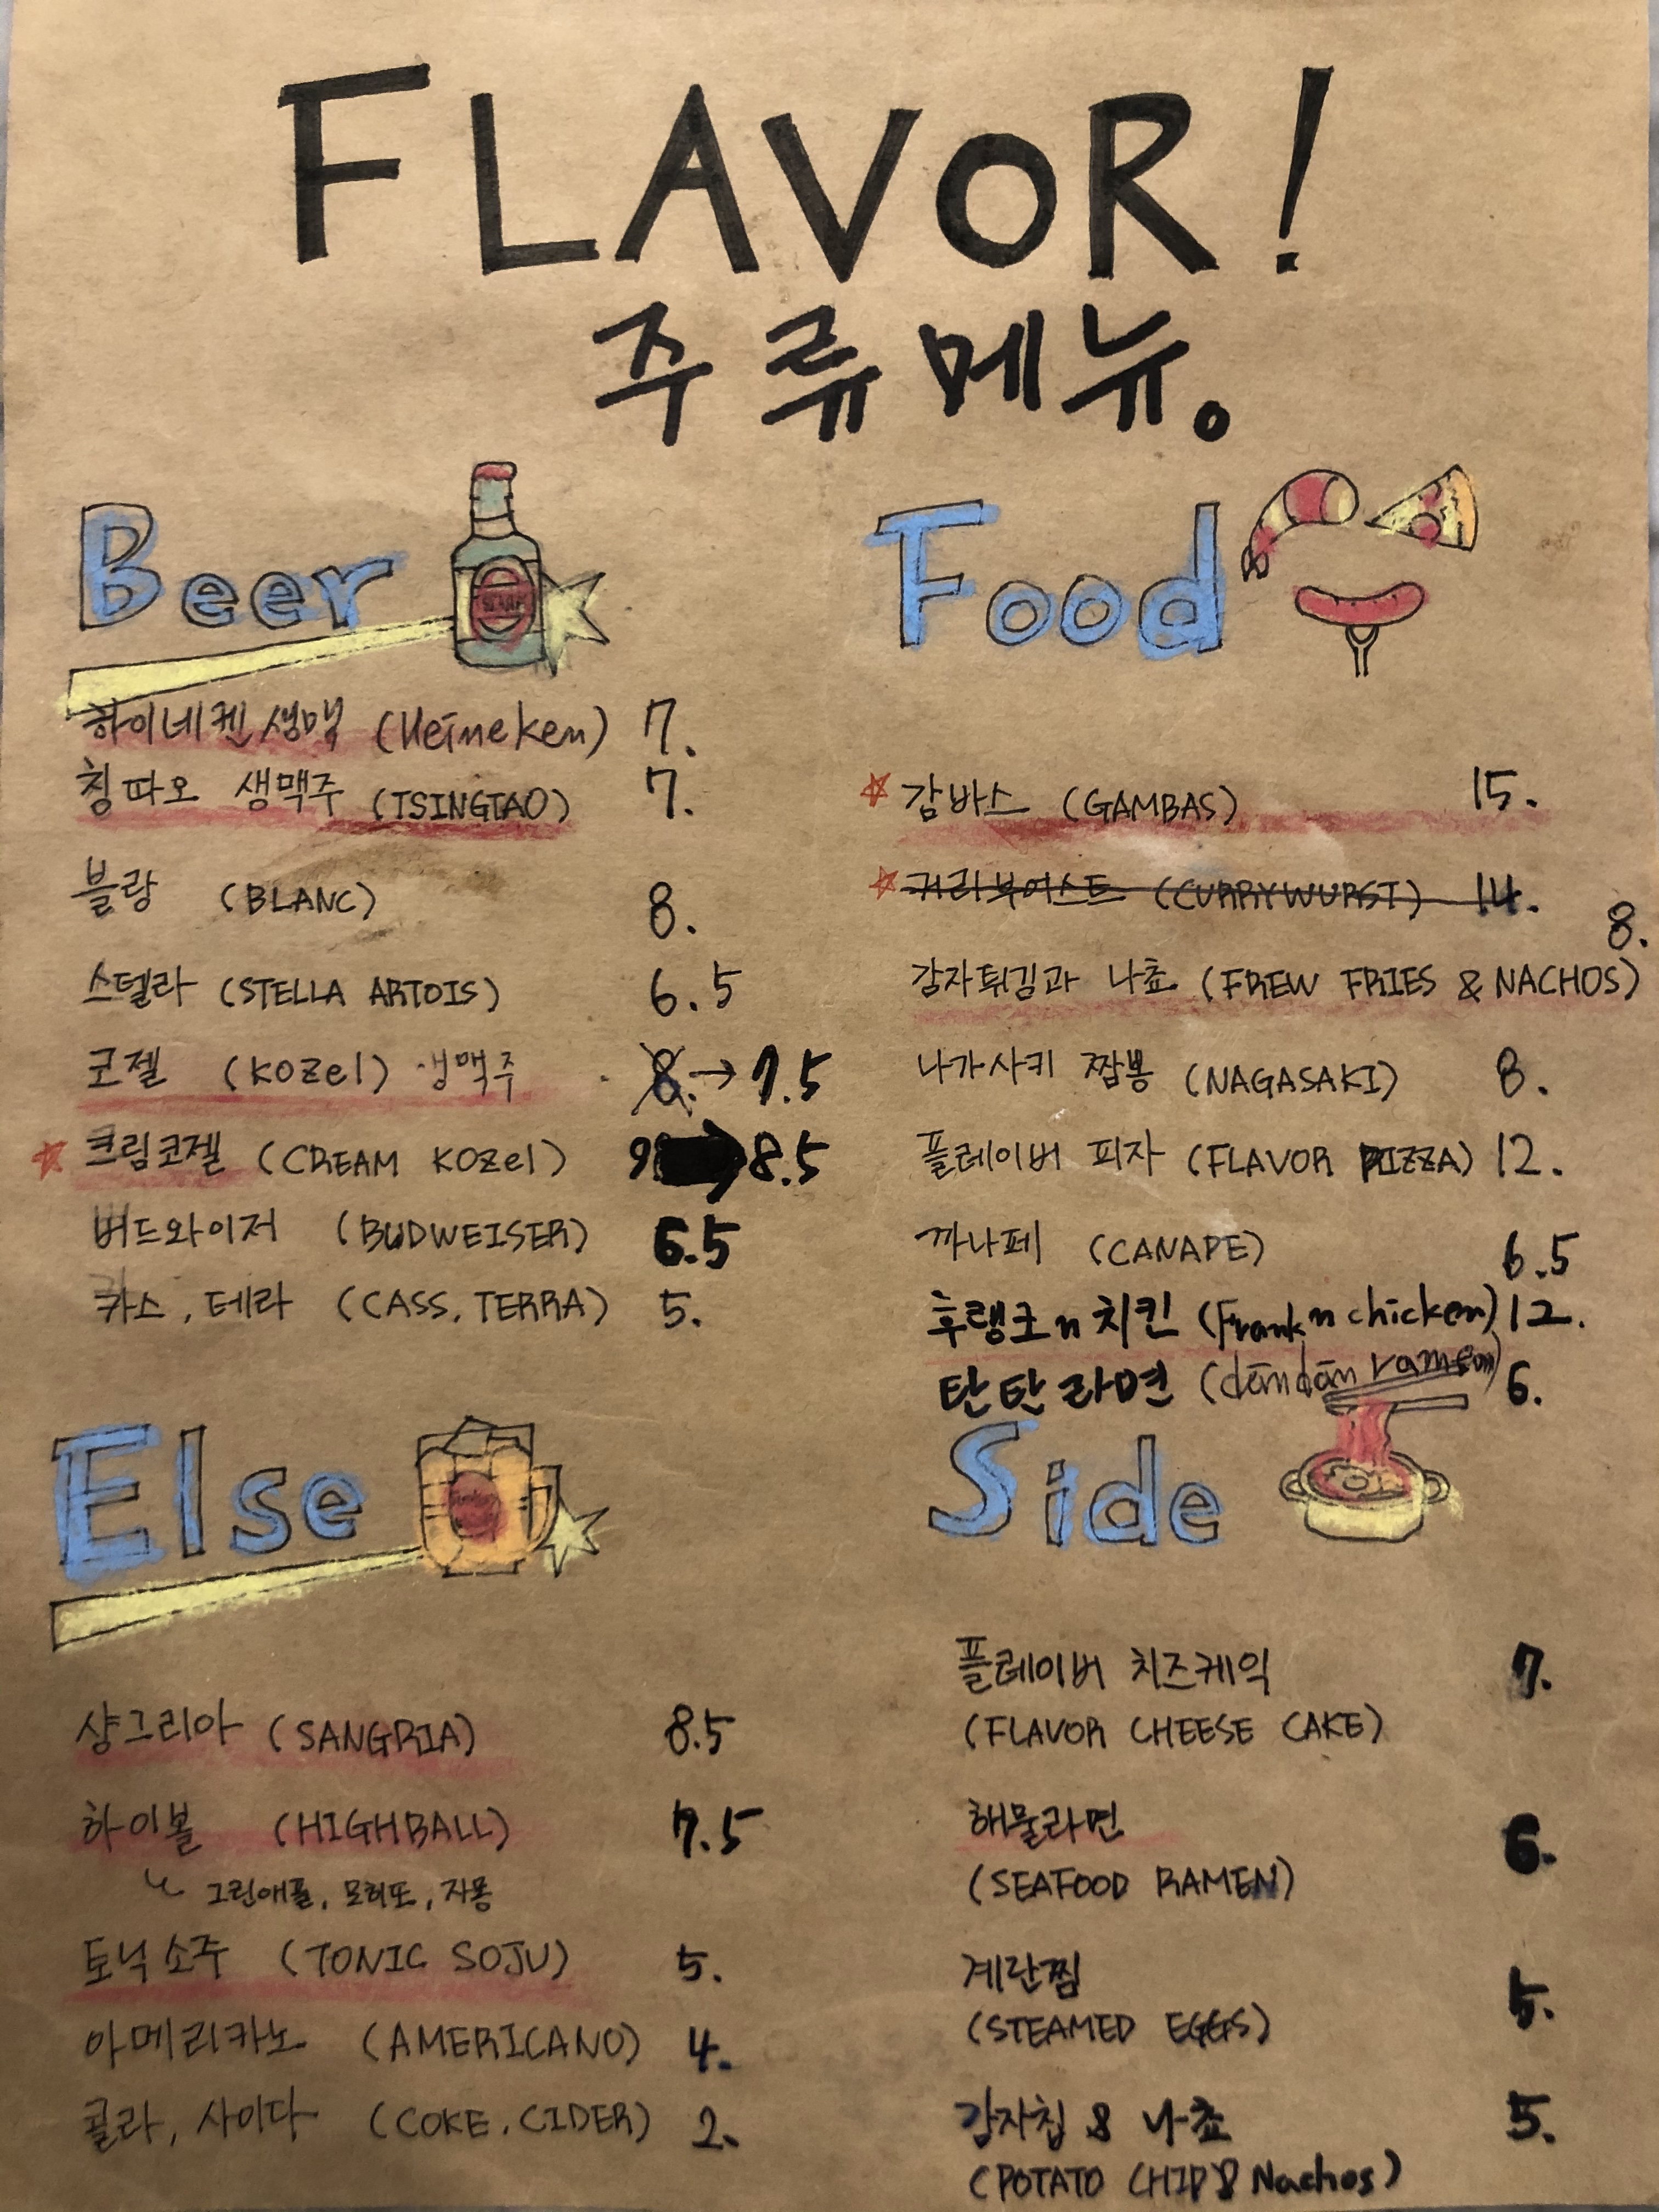 FLAVOR!
주류메뉴。
Beer
하이네켄생맥 (Heineken) 7.
칭따오 생맥주 (TSINGTAO) 7.
블랑 (BLANC) 8.
스텔라 (STELLA ARTOIS) 6.5
코젤 (KOZEL) 생맥주 8. → 7.5
크림코젤 (CREAM KOZEL) 9 → 8.5
버드와이저 (BUDWEISER) 6.5
카스, 테라 (CASS, TERRA) 5.
Else
샹그리아 (SANGRIA) 8.5
하이볼 (HIGHBALL) 7.5
그린애플, 모히또, 자몽
토닉소주 (TONIC SOJU) 5.
아메리카노 (AMERICANO) 4.
콜라, 사이다 (COKE, CIDER) 2.
Food
감바스 (GAMBAS) 15.
커리부어스트 (CURRYWURST) 14.
8.
감자튀김과 나쵸 (FREW FRIES & NACHOS)
나가사키 짬뽕 (NAGASAKI) 8.
플레이버 피자 (FLAVOR PIZZA) 12.
까나페 (CANAPE) 6.5
후랭크n치킨 (Frank n chicken) 12.
탄탄라면 (dāndān ramen) 6.
Side
플레이버 치즈케익 7.
(FLAVOR CHEESE CAKE)
해물라면 6.
(SEAFOOD RAMEN)
계란찜 5.
(STEAMED EGGS)
감자칩 & 나쵸 5.
(POTATO CHIP & Nachos)